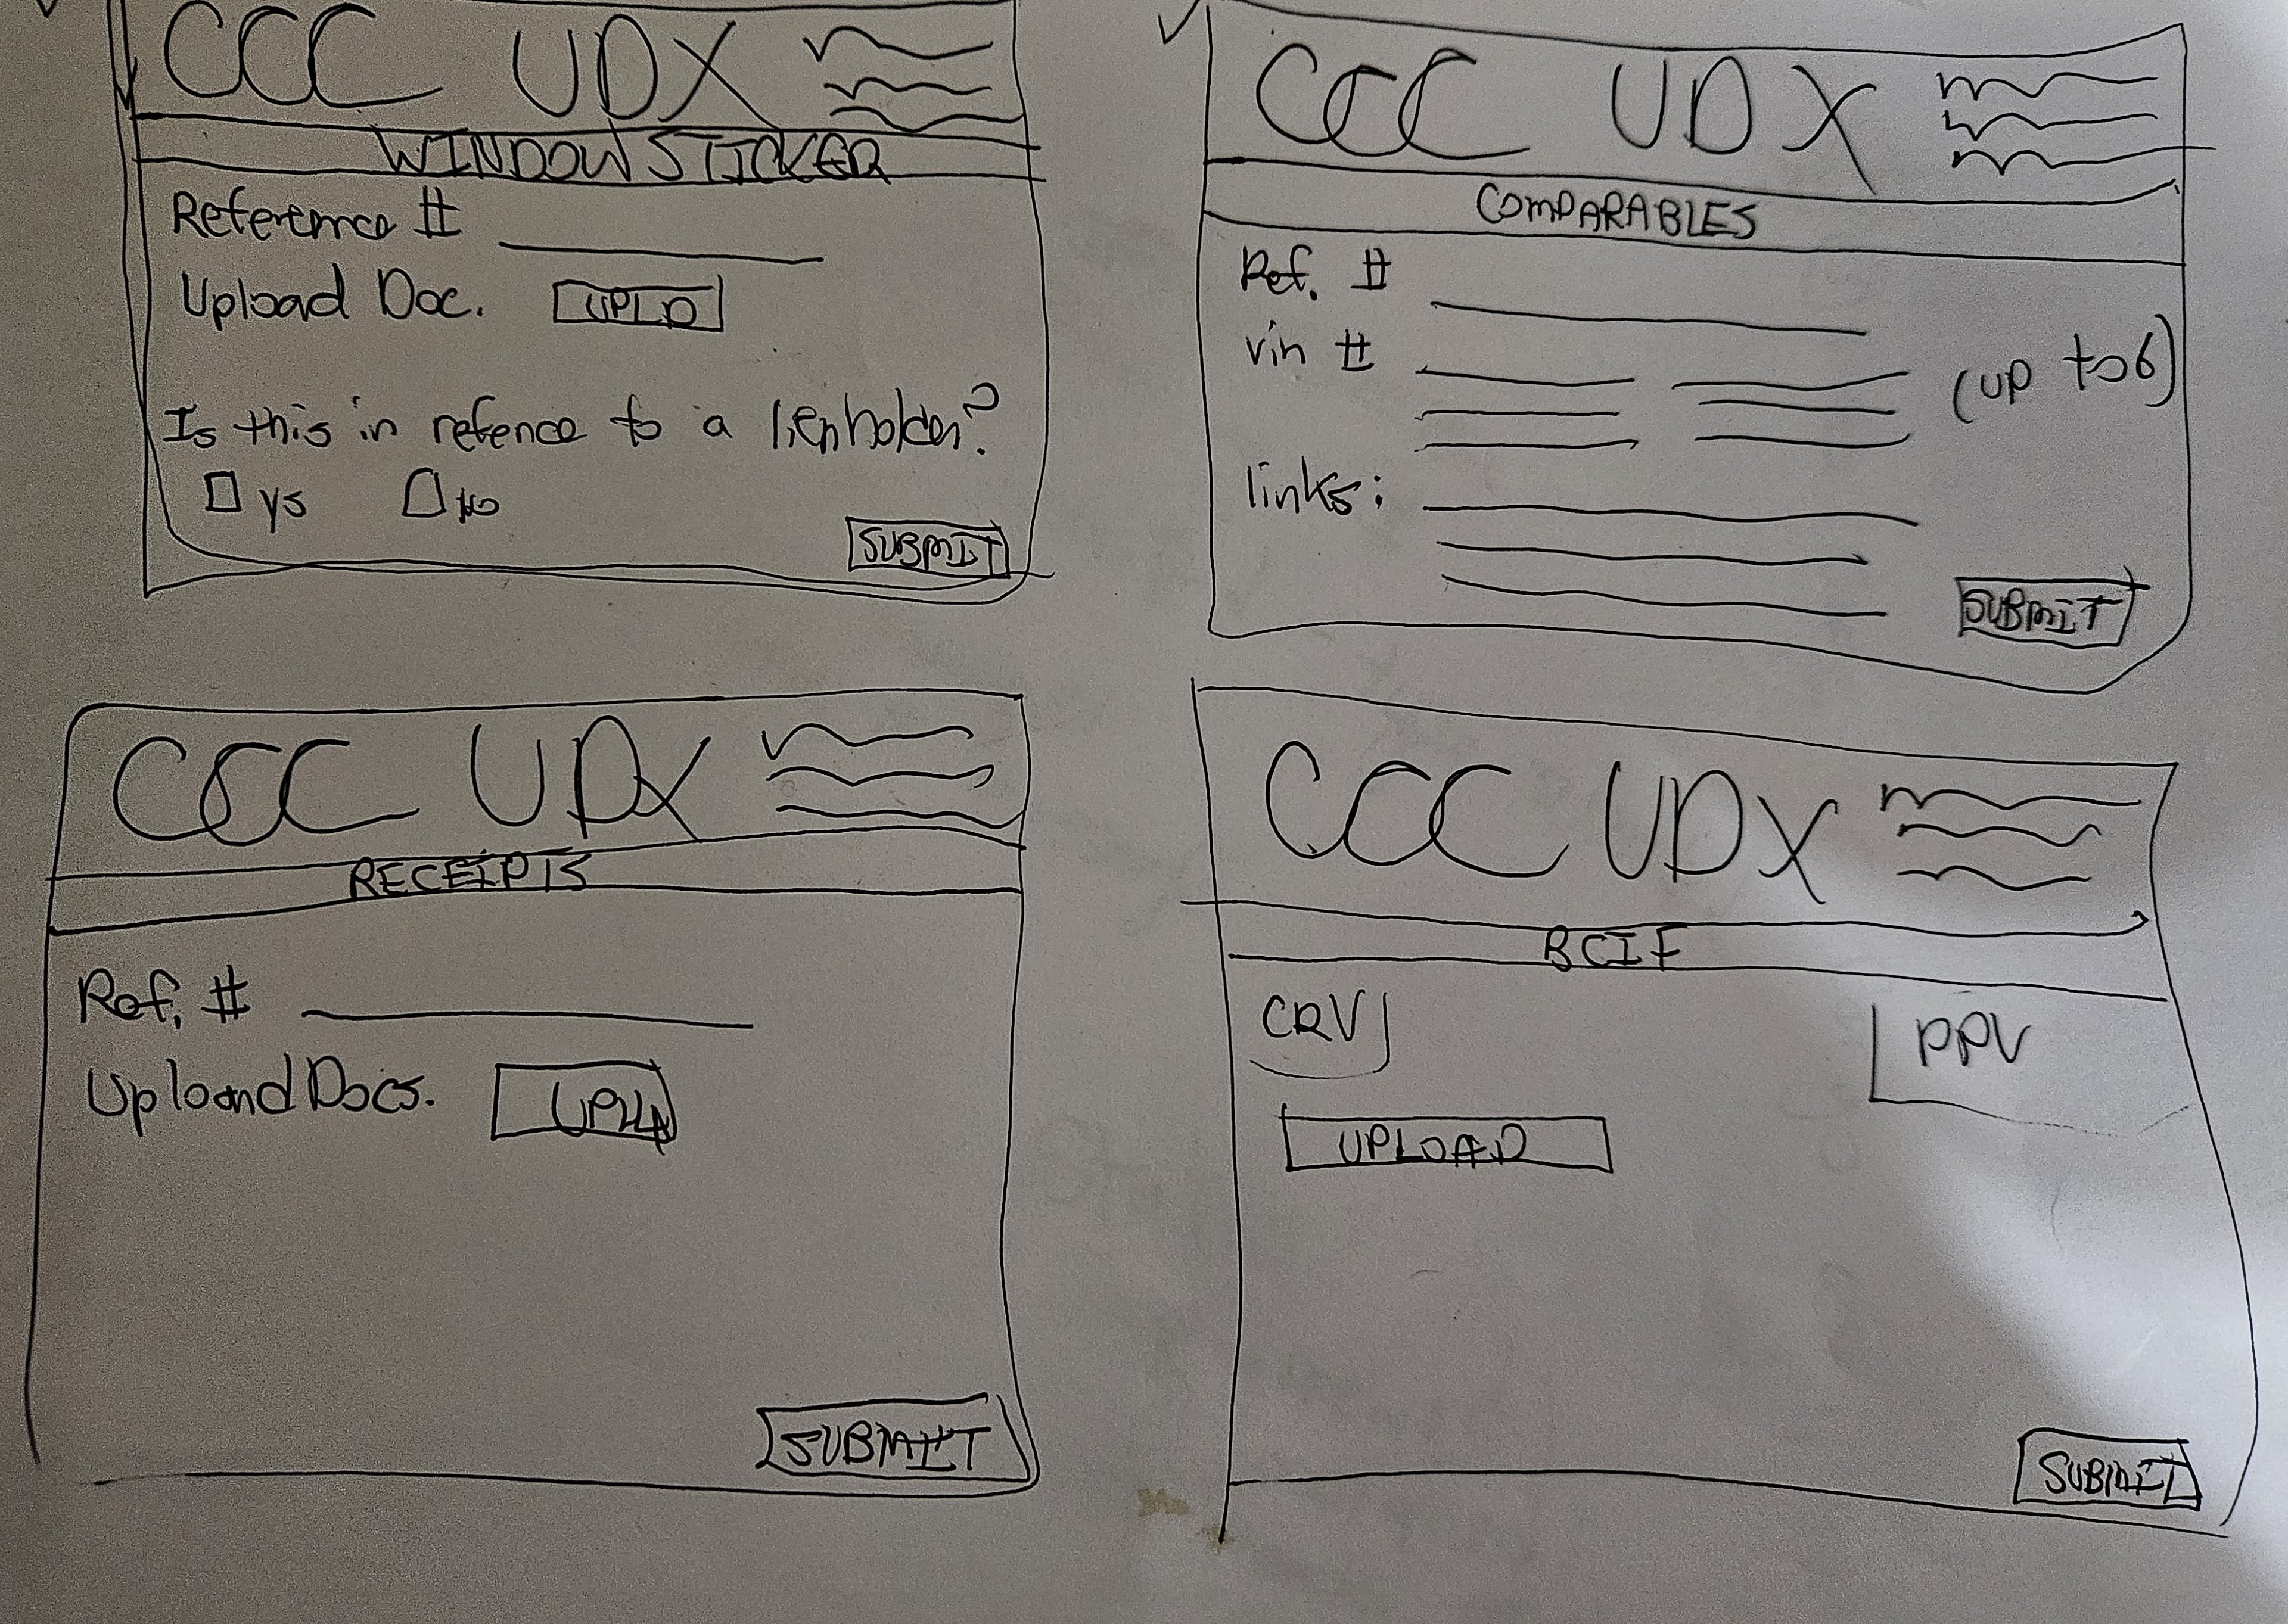 CCC UDX
WINDOW STICKER
Reference #
Upload Doc. UPLD
Is this in refence to a lienholder?
ys no
SUBMIT
CCC UDX
COMPARABLES
Ref. #
vin #
(up to 6)
links:
SUBMIT
CCC UDX
RECEIPTS
Ref. #
Upload Docs.
SUBMIT
CCC UDX
BCIF
CRV PPV
UPLOAD
SUBMIT